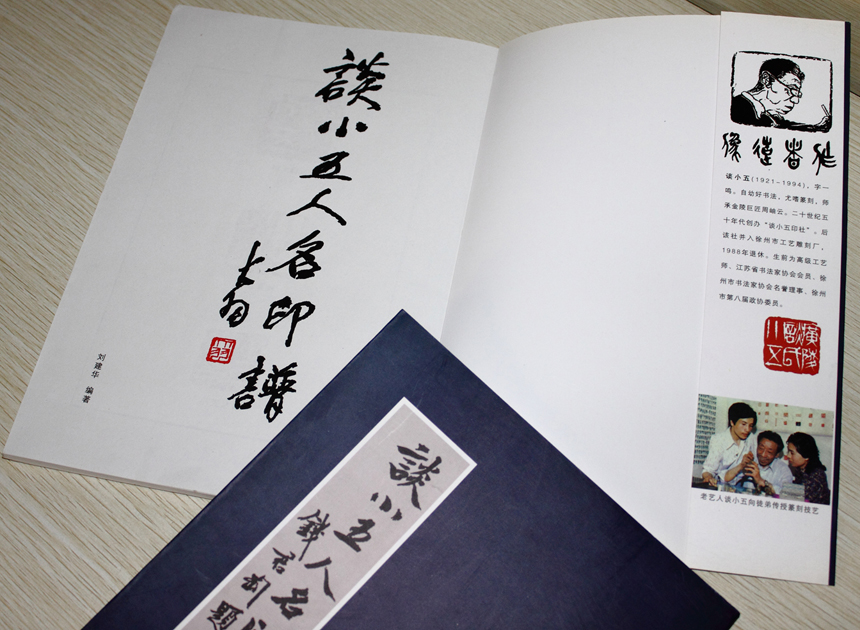 談小五人名印譜
大羽
刘建华 编著
谈小五(1921-1994)，字一
鸣。自幼好书法，尤嗜篆刻，师
承金陵巨匠周岫云。二十世纪五
十年代创办“谈小五印社”。后
该社并入徐州市工艺雕刻厂，
1988年退休。生前为高级工艺
师、江苏省书法家协会会员、徐
州市书法家协会名誉理事、徐州
市第八届政协委员。
老艺人谈小五向徒弟传授篆刻技艺
談小五人名
題